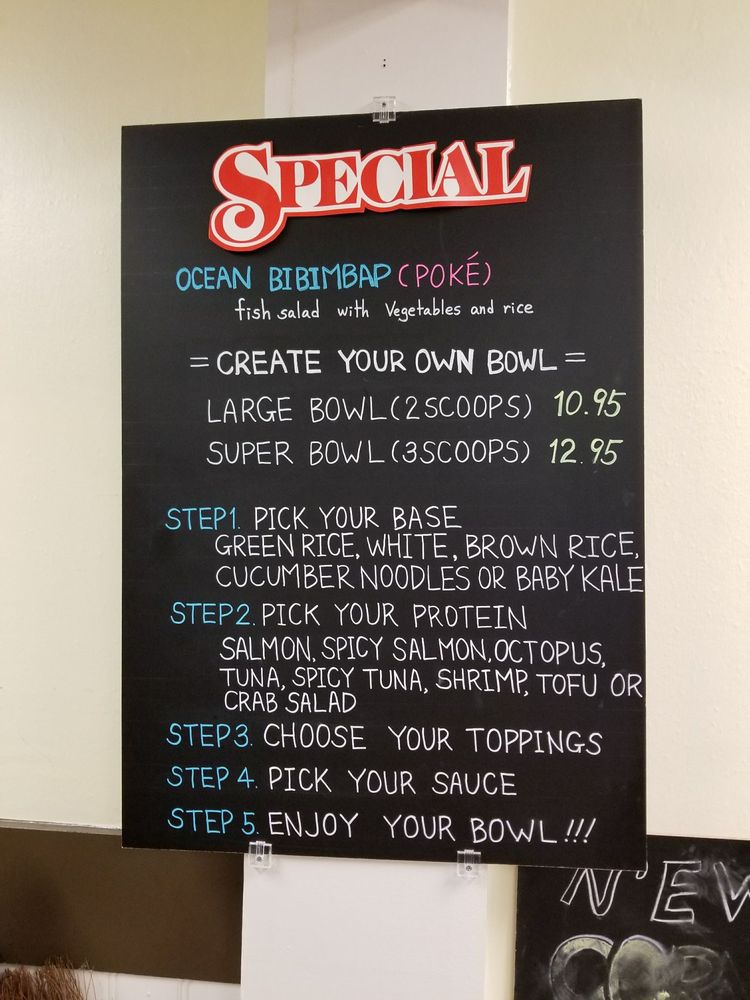 SPECIAL
OCEAN BIBIMBAP (POKÉ)
fish salad with Vegetables and rice
= CREATE YOUR OWN BOWL =
LARGE BOWL (2 SCOOPS) 10.95
SUPER BOWL (3 SCOOPS) 12.95
STEP1. PICK YOUR BASE
GREEN RICE, WHITE, BROWN RICE,
CUCUMBER NOODLES OR BABY KALE
STEP2. PICK YOUR PROTEIN
SALMON, SPICY SALMON, OCTOPUS,
TUNA, SPICY TUNA, SHRIMP, TOFU OR
CRAB SALAD
STEP3. CHOOSE YOUR TOPPINGS
STEP 4. PICK YOUR SAUCE
STEP 5. ENJOY YOUR BOWL!!!
N'EW